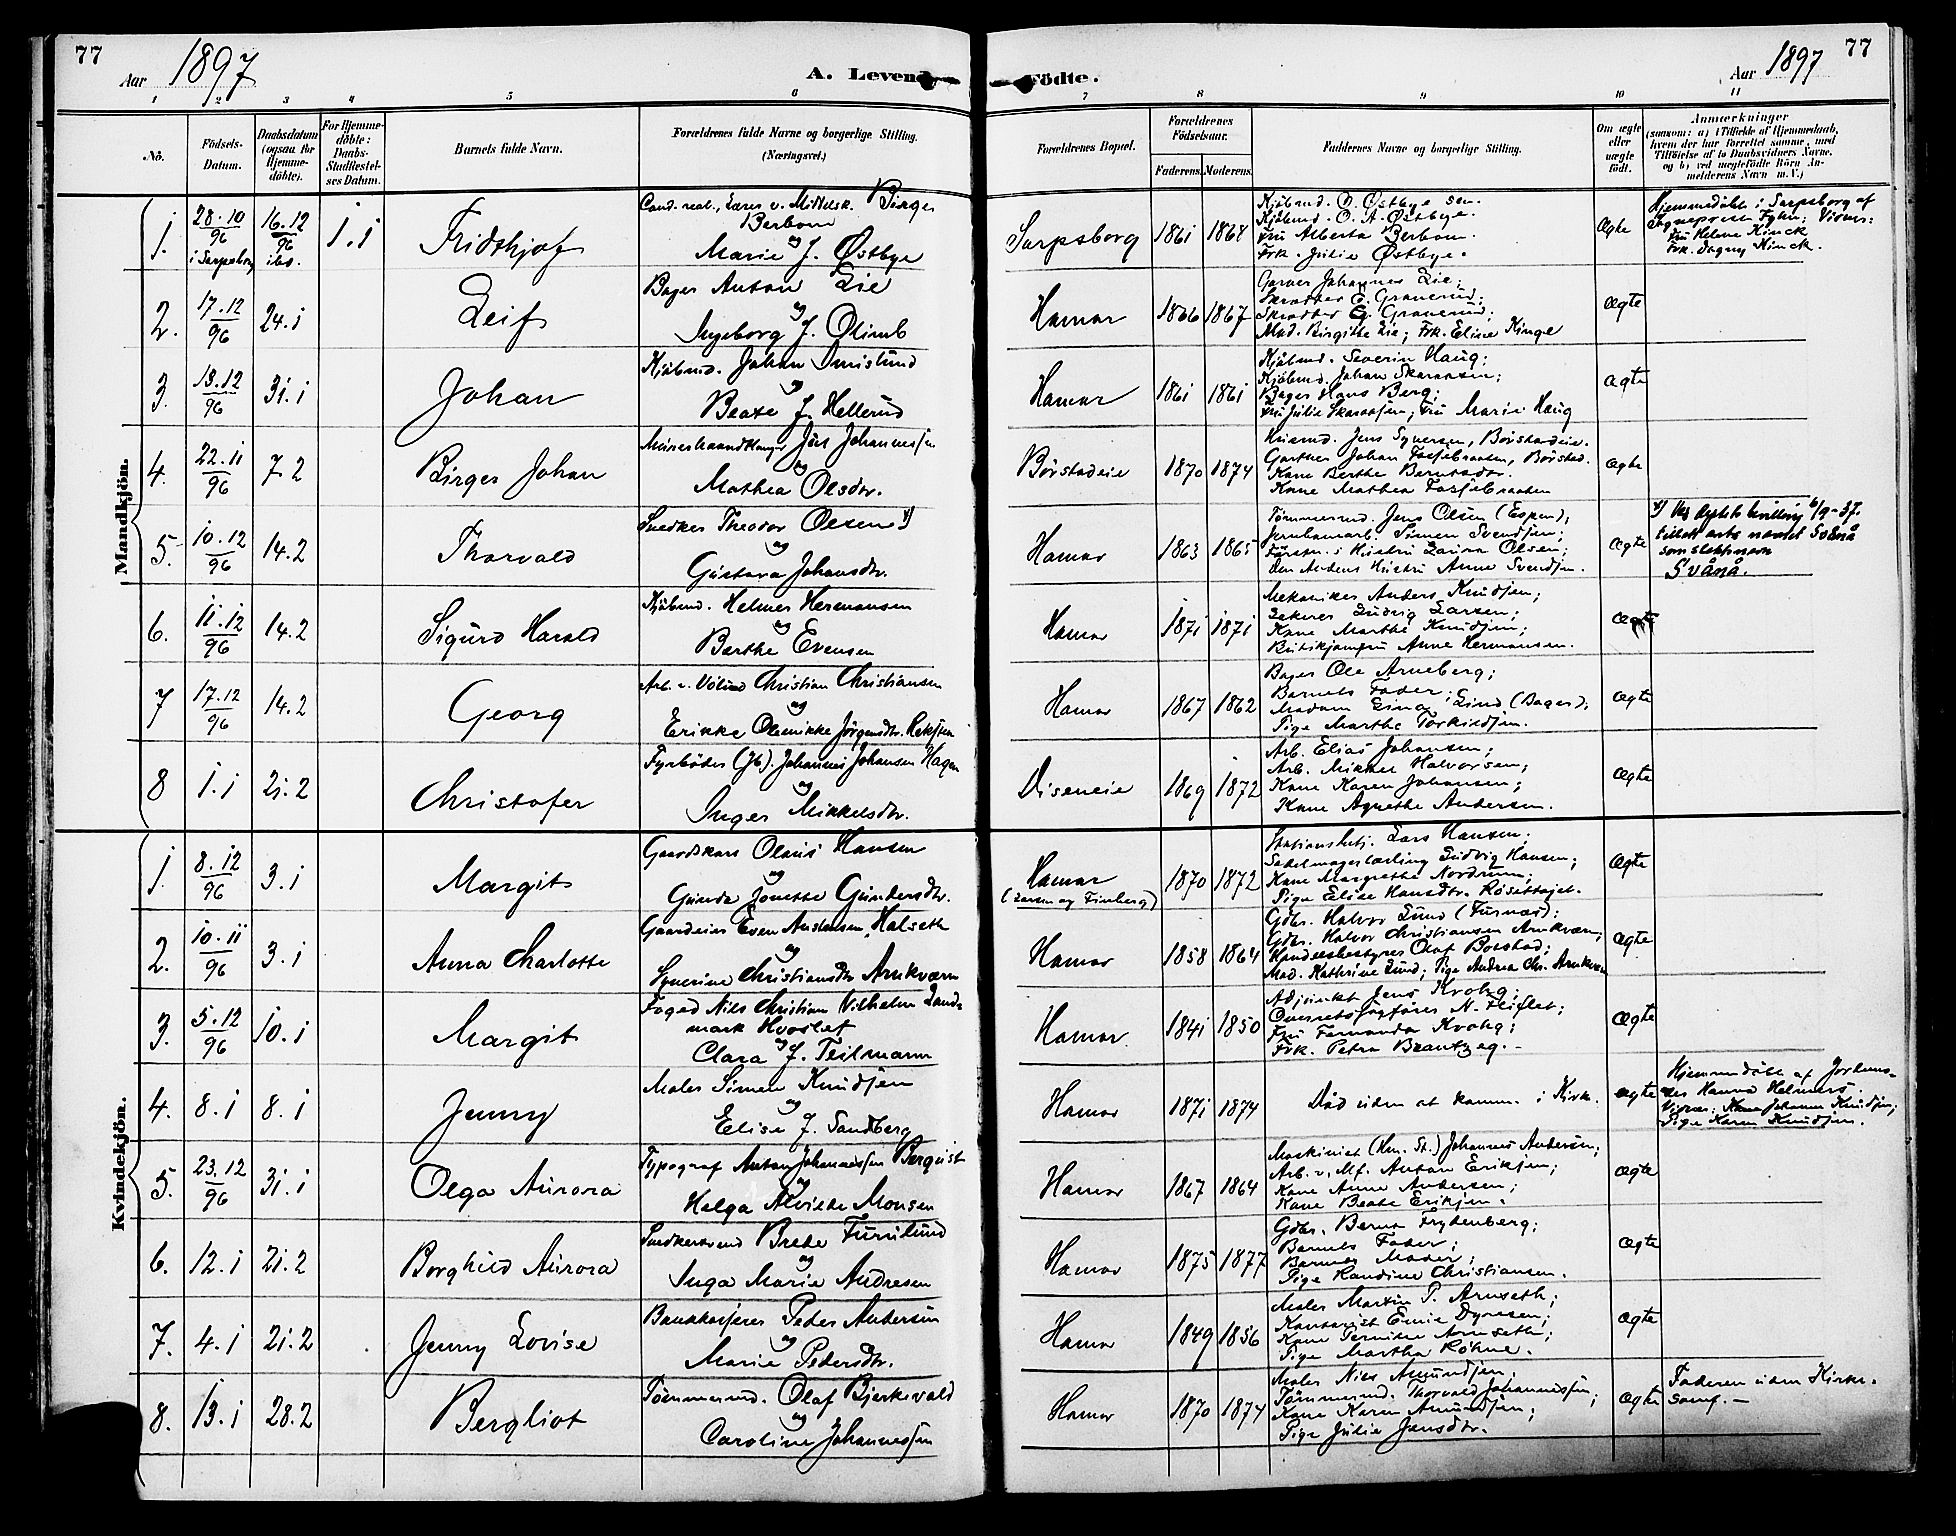 77
Aar 1897
A. Levende Födte.
Aar 1897
77
1 2 3 4 5 6 7 8 9 10 11
No.
Födsels-Datum.
Daabsdatum (ogsaa for Hjemme-döbte).
For Hjemme-döbte: Daabs-Stadfæstel-ses Datum.
Barnets fulde Navn.
Forældrenes fulde Navne og borgerlige Stilling. (Næringsvei.)
Forældrenes Bopæl.
Forældrenes Födselsaar.
Faderens. Moderens.
Faddernes Navne og borgerlige Stilling.
Om ægte eller uægte födt.
Anmærkninger
(saasom: a) i Tilfælde af Hjemmedaab, hvem der har forrettet samme, med Tilföielse af to Daabsvidners Navne, og b) ved uægtefödte Börn An-melderens Navn m. V.)
Mandkjön.
1. 28.10/96 i Sarpsborg 16.12/96 ibd. 1.1 Fridthjof
Cand. real., Lærer v. Middelsk. Birger Berbom
og
Marie J. Østbye
Sarpsborg 1861 1868
Kjöbmd. O. Østbye sen.
Kjöbmd. O. A. Østbye.
Fru Alberta Berbom.
Frk. Julie Østbye.
Ægte
Hjemmedöbt i Sarpsborg af
Sogneprest
Fru Helene Kinck
Frk. Dagny Kinck.
2. 17.12/96 24.1 Leif
Bager Anton Lie
og
Ingeborg J. Olimb
Hamar 1866 1867
Garver Johannes Lie;
Skrædder E. Granerud;
Skrædder G. Granerud;
Mad. Birgitte Lie; Frk. Eline Kinge
Ægte
3. 13.12/96 31.1 Johan
Kjöbmd. Johan
og
Beate J. Hellerud
Hamar 1861 1861
Kjöbmd. Severin Haug;
Kjöbmd. Johan Skaraasen;
Bager Hans Berg;
Fru Julie Skaraasen; Fru Marie Haug
Ægte
4. 22.11/96 7.2 Birger Johan
Murerhaandlanger Jörg Johannessen
og
Mathea Olsdtr.
Börstadeie 1870 1874
Husmd. Jens Syversen, Börstadeie.
Gartner Johan Börstad.
Kone Berthe Berntsdtr.
Kone Mathea
Ægte
5. 10.12/96 14.2 Thorvald
Snedker Theodor Olsen x)
og
Gustava Johansdtr.
Hamar 1863 1865
Tömmermd. Jens Olsen (Espen);
Jernbanearb. Simen Svendsen;
Förstn.s Hustru Laura Olsen;
Den Andens Hustru Anne Svendsen.
Ægte
x) Ved 6/9-37.
navnet Svånå
som slektsnavn
Svånå.
6. 11.12/96 14.2 Sigurd Harald
Kjöbmd. Helmer Hermansen
og
Berthe Evensen
Hamar 1871 1871
Mekaniker Anders Knudsen;
Ludvig Larsen;
Kone Marthe Knudsen;
Butikjomfru Anne Hermansen.
Ægte
7 17.12/96 14.2 Georg
Arb. v. Völund Christian Christiansen
og
Erikke Olenikke Jörgensdtr. Rekstin
Hamar 1867 1862
Bager Ole Arneberg;
Barnets Fader;
Madam Lina Lund (Bager);
Pige Marthe Torkildsen.
Ægte
8 1.1 21.2 Christofer
Fyrböder (Jb). Johannes Johansen Hagen
og
Inger Mikkelsdtr.
Diseneie 1869 1872
Arb. Elias Johansen;
Arb. Mikkel Halvorsen;
Kone Karen Johansen;
Kone Agnethe Andersen.
Ægte
Kvindekjön.
1. 8.12/96 3.1 Margit
Gaardskarl Olaus Hansen
og
Gunda Jonette Gundersdtr.
Hamar
(Larsen og Finberg)
1870 1872
Stationsbetj. Lars Hansen;
Sadelmagerlærling Ludvig Hansen;
Kone Margrethe Nordrum;
Pige Elise Hansdtr. Rösettajet.
Ægte
2. 10.11/96 3.1 Anna Charlotte
Gaardeier Even Andersen Halseth
og
Syverine Christiansdtr Arnkværn
Hamar 1858 1864
Gdbr. Halvor Lund (Furnæs);
Gdbr. Halvor Christiansen Arnkværn;
Handelsbestyrer Olaf Borstad;
Mad. Kathrine Lund; Pige Andrea Chr. Arnkværn
Ægte
3. 5.12/96 10.1 Margit
Foged Nils Christian Vilhelm Land-
mark Hvoslef
og
Clara J. Teilmann
Hamar. 1841 1850
Adjunkt Jens Krohg;
Overretssagförer N. Heiflet;
Fru Fernanda Krohg;
Frk. Petra Brantzeg.
Ægte
4. 8.1 8.1 Jenny
Maler Simen Knudsen
og
Elise J. Sandberg
Hamar 1871 1874
Död uden at komme i Kirk.
Ægte
Hjemmedöbt af Jordemo-
der Hanna Helmers.
Vidner: Kone Johanne Knudsen;
Pige Karen Knudsen.
5. 23.12/96 31.1 Olga Aurora
Typograf Anton Johannessen Berquist
og
Helga Alvilde Monsen
Hamar 1867 1864
Maskinist (Hm. St.) Johannes Andersen;
Arb. v. Mf. Anton Eriksen;
Kone Anne Andersen;
Kone Beate Eriksen.
Ægte
6. 12.1 21.2 Borghild Aurora
Snedkersvend Brede Furulund
og
Inga Marie Andresen
Hamar 1875 1877
Gdbr. Bernt Frydenberg;
Barnets Fader;
Barnets Moder;
Pige Randine Christiansen.
Ægte
7. 4.1 21.2 Jenny Lovise
Bankkasserer Peder Andersen
og
Marie Pedersdtr.
Hamar 1849 1856
Maler Martin P. Arnseth;
Kontorist Emil Dyresen;
Kone Pernille Arnseth;
Pige Martha Röhne.
Ægte
8. 13.1 28.2 Bergliot
Tömmermd. Olaf Bjerkevald
og
Caroline Johannessen
Hamar 1870 1874
Maler Nils Amundsen
Tömmermd. Thorvald Johannessen;
Kone Karen Amundsen;
Pige Julie Jensdtr.
Ægte
Faderen uden Kirke-
samf. —